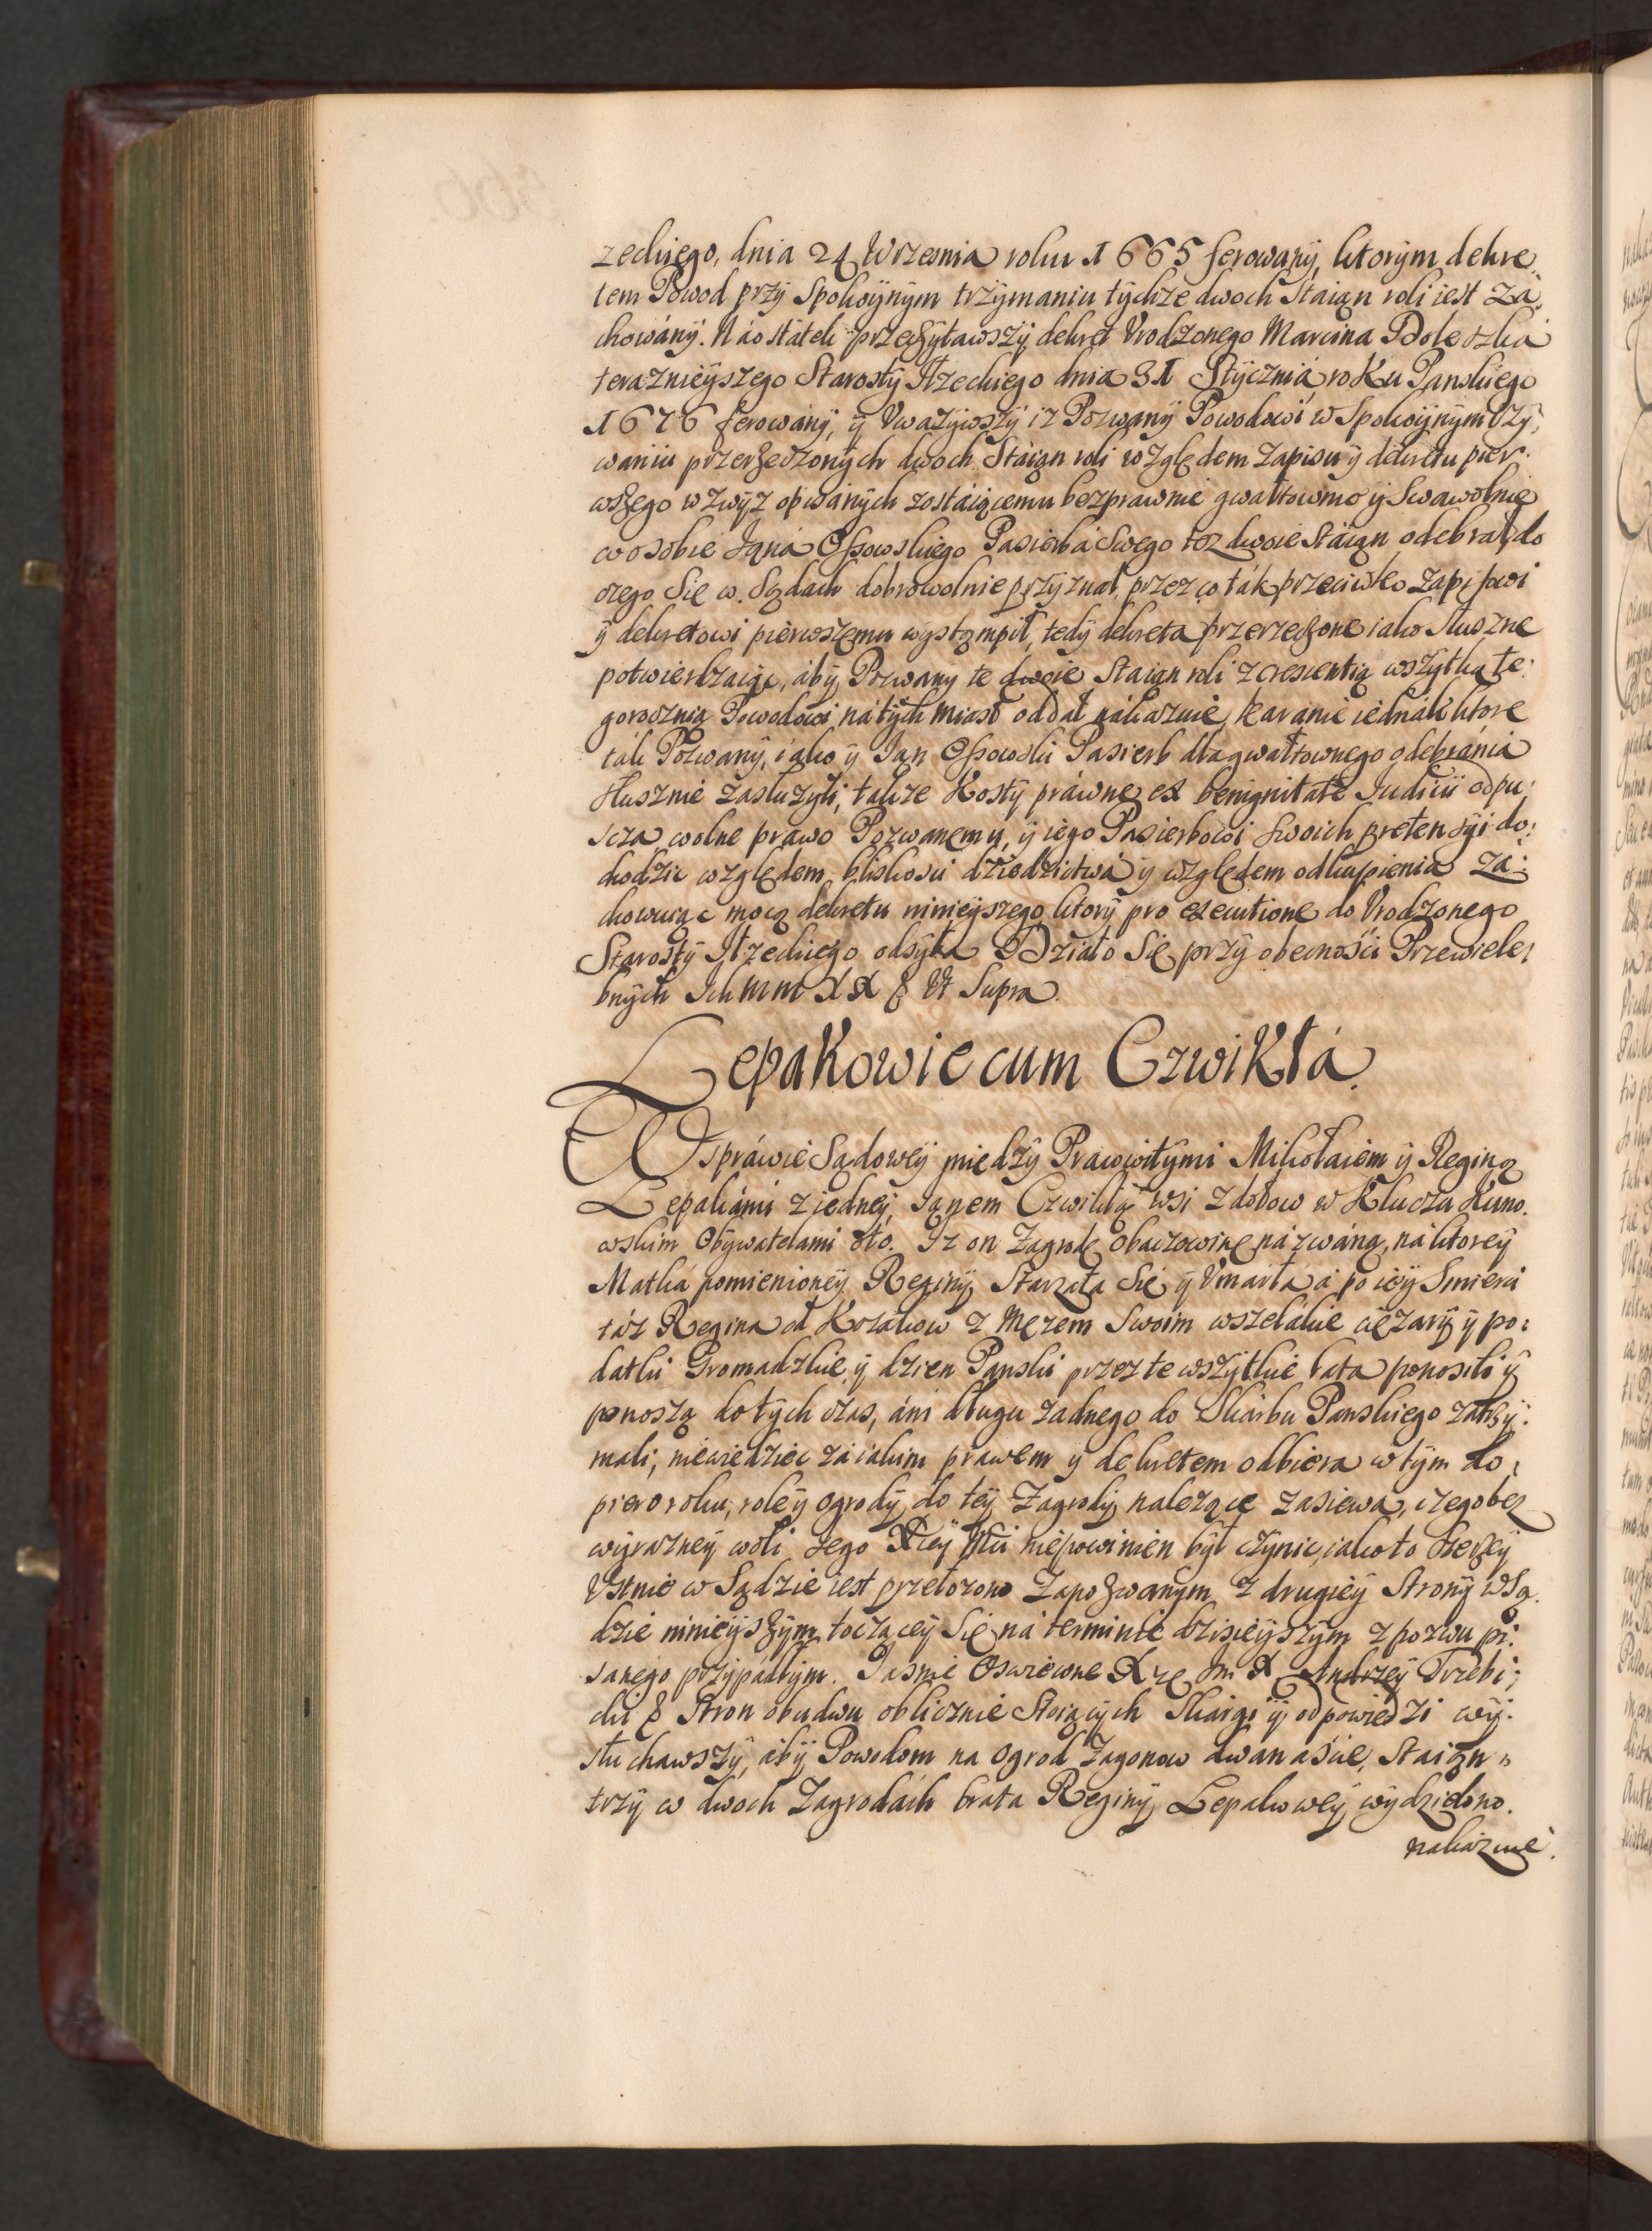 zeckiego, dnia 24 Wrzesnia roku 1665 ferowany, ktorym dekre,
tem Powod przy Spokoynym trzymaniu tychze dwoch Staian roli iest zá,
chowány. Náostátek przeczytawszy dekret Vrodzonego Marcina Doleszká
teraznieyszego Starosty Iłzeckiego dnia 31 Styczniá roKu Panskiego
1676 ferowány, y Vwazywszy iz Pozwany Powodowi w Spokoynym Vzy,
waniu przerzeczonych dwoch Stáian roli względem zapisu y dekretu pier.
wszego wzwyz opisánych zostáiącemu bezprawnie gwałtowmo y Swawolnie
w osobie Janá Ossowskiego Pasierbá Swego toz dwoie Stáian odebrał, do
czego Się w Sądach dobrowolnie przyznał, przez co ták przeciwko zapisowi
y dekretowi pierwszemu wystąmpił, tedy dekreta przerzeczone iako słuszne
potwierdzaiąc, aby Pozwany te dwoie Staian roli z crescentią wszytką te.
goroczną Powodowi, nátych miast oddał nákazuie, karanie iednák ktore
ták Pozwany, iako y Jan Ossowski Pasierb dla gwałtownego odebránia
słusznie zasłuzyli, takze Koszty práwne ex benignitate Judicii odpu,
scza, wolne prawo Pozwanemu, y iego Pasierbowi Swoich pretensyi do:
chodzic względem bliskosci dziedzictwá y względem odkupienia zá:
chowuiąc mocą dekretu ninieyszego, ktory pro executione do Vrodzonego
Starosty Iłzeckiego odsyła. Działo Się przy obecności Przewiele,
bnych Ich mm XX & Vt Supra.
Lepakowie cum CzwiKłá.
W spráwie Sądowey między Prawowitymi Mikołaiem y Reginą
Lepakámi z iedney, Janem Czwikłą wsi Zdołow w Kluczu Kuno.
wskim Obywatelami oto. Iz on Zagrodę Obaczowinę názwáną, ná ktorey
Matká pomienioney Reginy Starzała Się y Vmarłá á po iey Smierci
táz Regina od Kozakow z Męzem Swoim wszelákie cięzary y po:
datki Gromadzkie, y dzien Panski przez te wszytkie lata ponosili y
ponoszą do tych czas, áni długu zadnego do Skárbu Panskiego zatrzy:
mali, niewiedziec zá iakim prawem y dekretem odbiera w tym do,
piero roku, role y ogrody do tey Zagrody nalezące zasiewa, czego bez
wyrazney woli Jego Xcey Mci niepowinien był czynic, iako to szerzey
Vstnie w Sądzie iest przełozono Zapozwanym z drugiey Strony w Są.
dzie ninieyszym toczącey Się, ná terminie dzisieyszym z pozwu pi:
sanego przypádłym. Jasnie Oswiecone Xże Jm X Andrzey Trzebi;
cki & Stron obudwu oblicznie Stoiących Skárgi y odpowiedzi wy:
słuchawszy, áby Powodom na ogrod Zagonow dwanaście, Staian
trzy w dwoch Zagrodách brata Reginy Lepakowey wydzielono.
nakázuie.